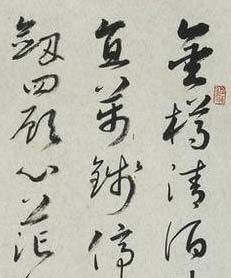 金樽清酒
直萬錢停
劍四顧心茫